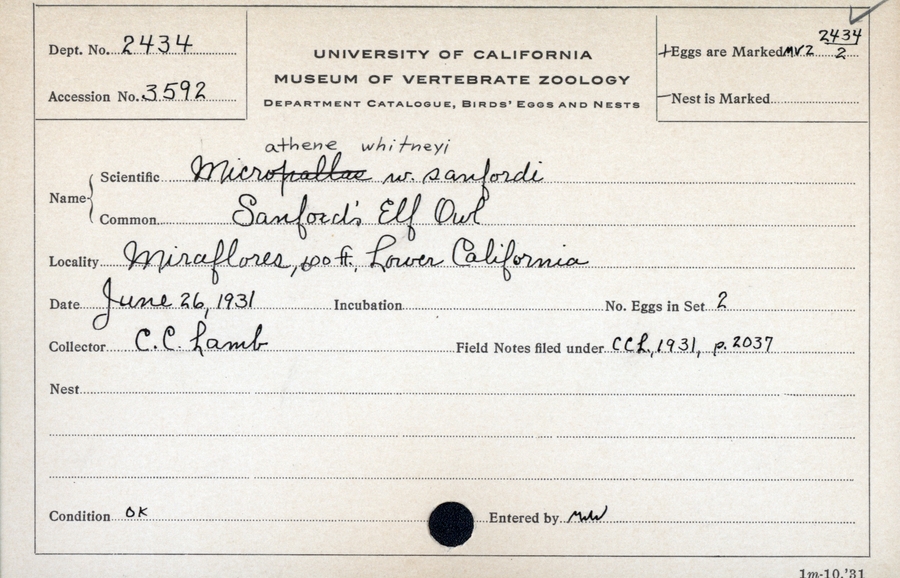 Dept. No. 2434
UNIVERSITY OF CALIFORNIA
MUSEUM OF VERTEBRATE ZOOLOGY
DEPARTMENT CATALOGUE, BIRDS' EGGS AND NESTS
Eggs are Marked MVZ 2434/2
Accession No. 3592
Nest is Marked
athene whitneyi
Name Scientific Micropallas w. sanfordi
Common Sanford's Elf Owl
Locality Miraflores, ft, Lower California
Date June 26, 1931 Incubation No. Eggs in Set 2
Collector C.C. Lamb Field Notes filed under CCL, 1931, p. 2037
Nest
Condition OK Entered by
1m-10,'31